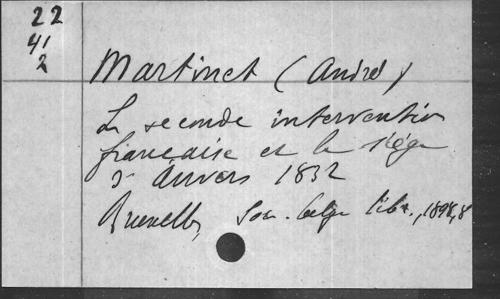 22
41
2
Martinet (André)
La seconde intervention
française et le siège
d'Anvers 1832
Bruxelles, Soc. belge libr., 1898, 8